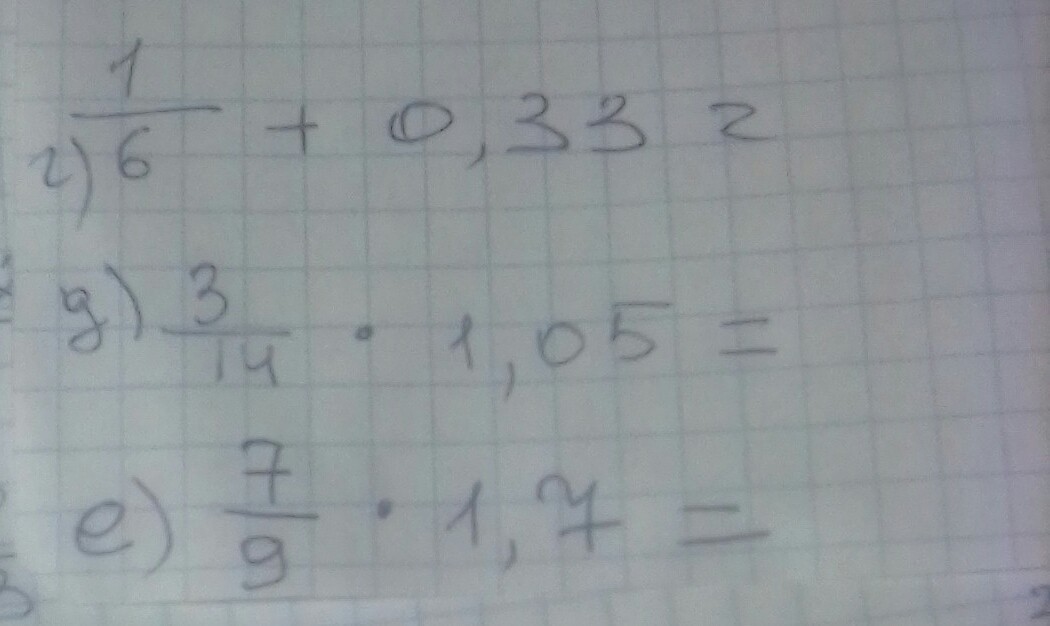 г) 1/6 + 0,33 =
д) 3/14 · 1,05 =
е) 7/9 · 1,7 =